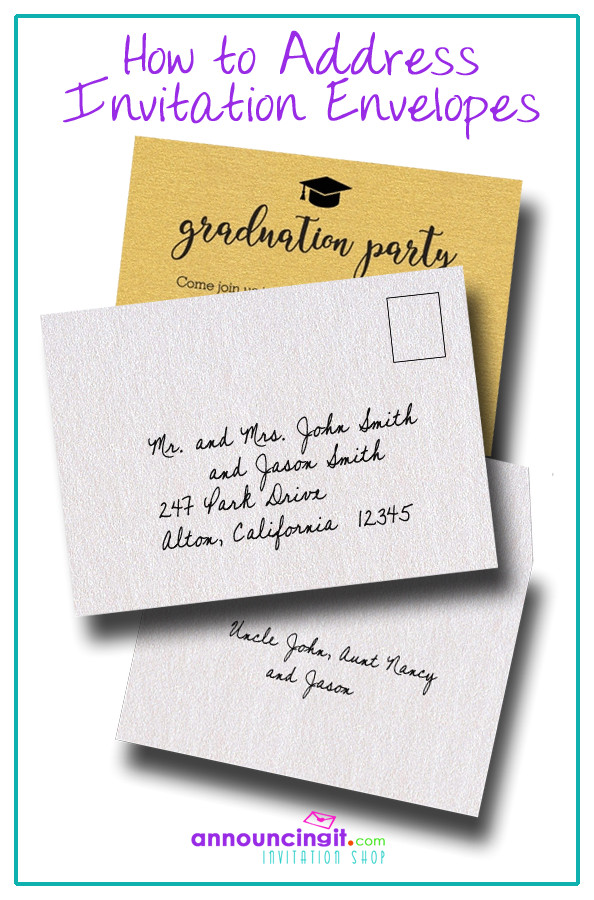 How to Address
Invitation Envelopes
graduation party
Come join us
Mr. and Mrs. John Smith
and Jason Smith
247 Park Drive
Alton, California 12345
Uncle John, Aunt Nancy
and Jason
announcingit.com
INVITATION SHOP